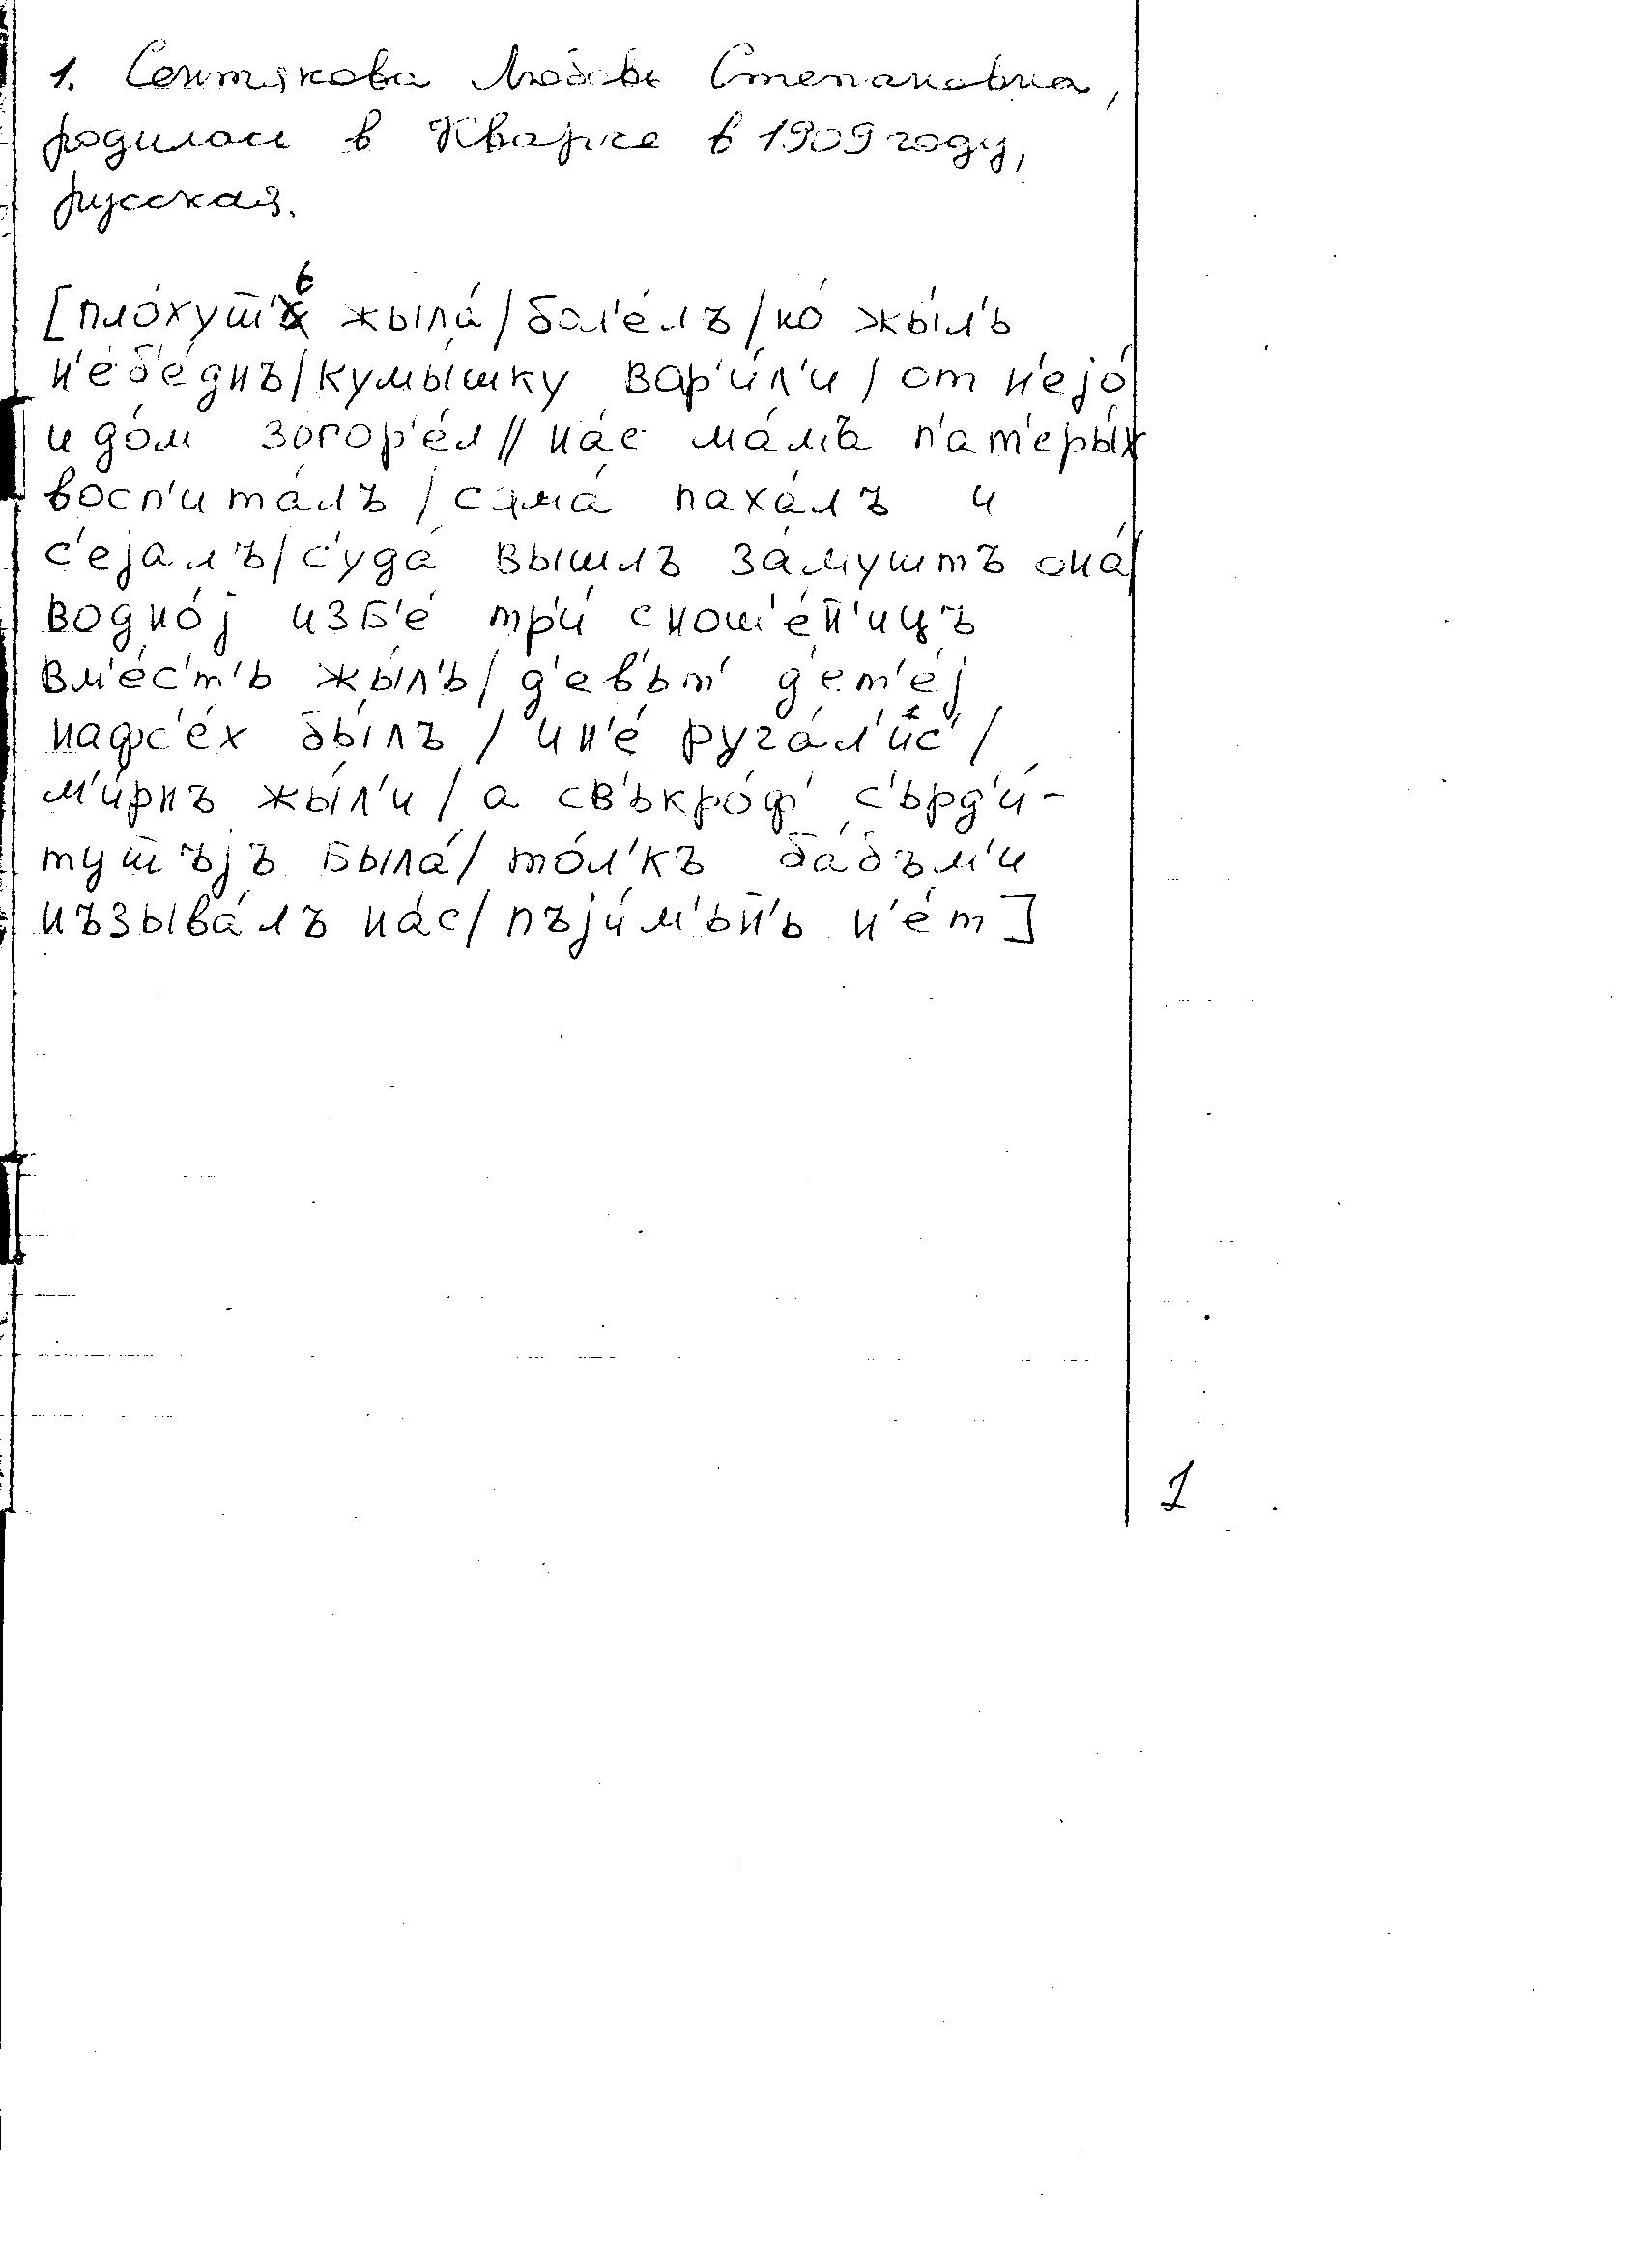 1. Сентякова Любовь Степановна,
родилась в Кварсе в 1909 году,
русская.
[пло́хуш̅'ь жыла́/бол'е́лъ/но́ жы́л'ь
н'е́б'е́днъ/кумы́шку вар'и́л'и/от н'ejо́
и до́м зогор'е́л//на́с ма́мъ п'ат'еры́х
восп'ита́лъ/сама́ паха́лъ и
с'е́jaлъ/с'уда́ вы́шлъ за́муштъ она́/
водно́j изб'е́ тр'и́ снош'е́н̅'ицъ
вм'е́с'т'ь жы́л'ь/д'е́в'ът' д'ет'е́j
нафс'е́х бы́лъ/и н'е́ руга́л'ис'/
м'и́рнъ жы́л'и/а св'ькро́ф' с'ърд'и́-
туш̅ъjъ была́/то́л'къ ба́бъм'и
нъзыва́лъ на́с/пъjи́м'ьн̅'ь н'е́т]
1